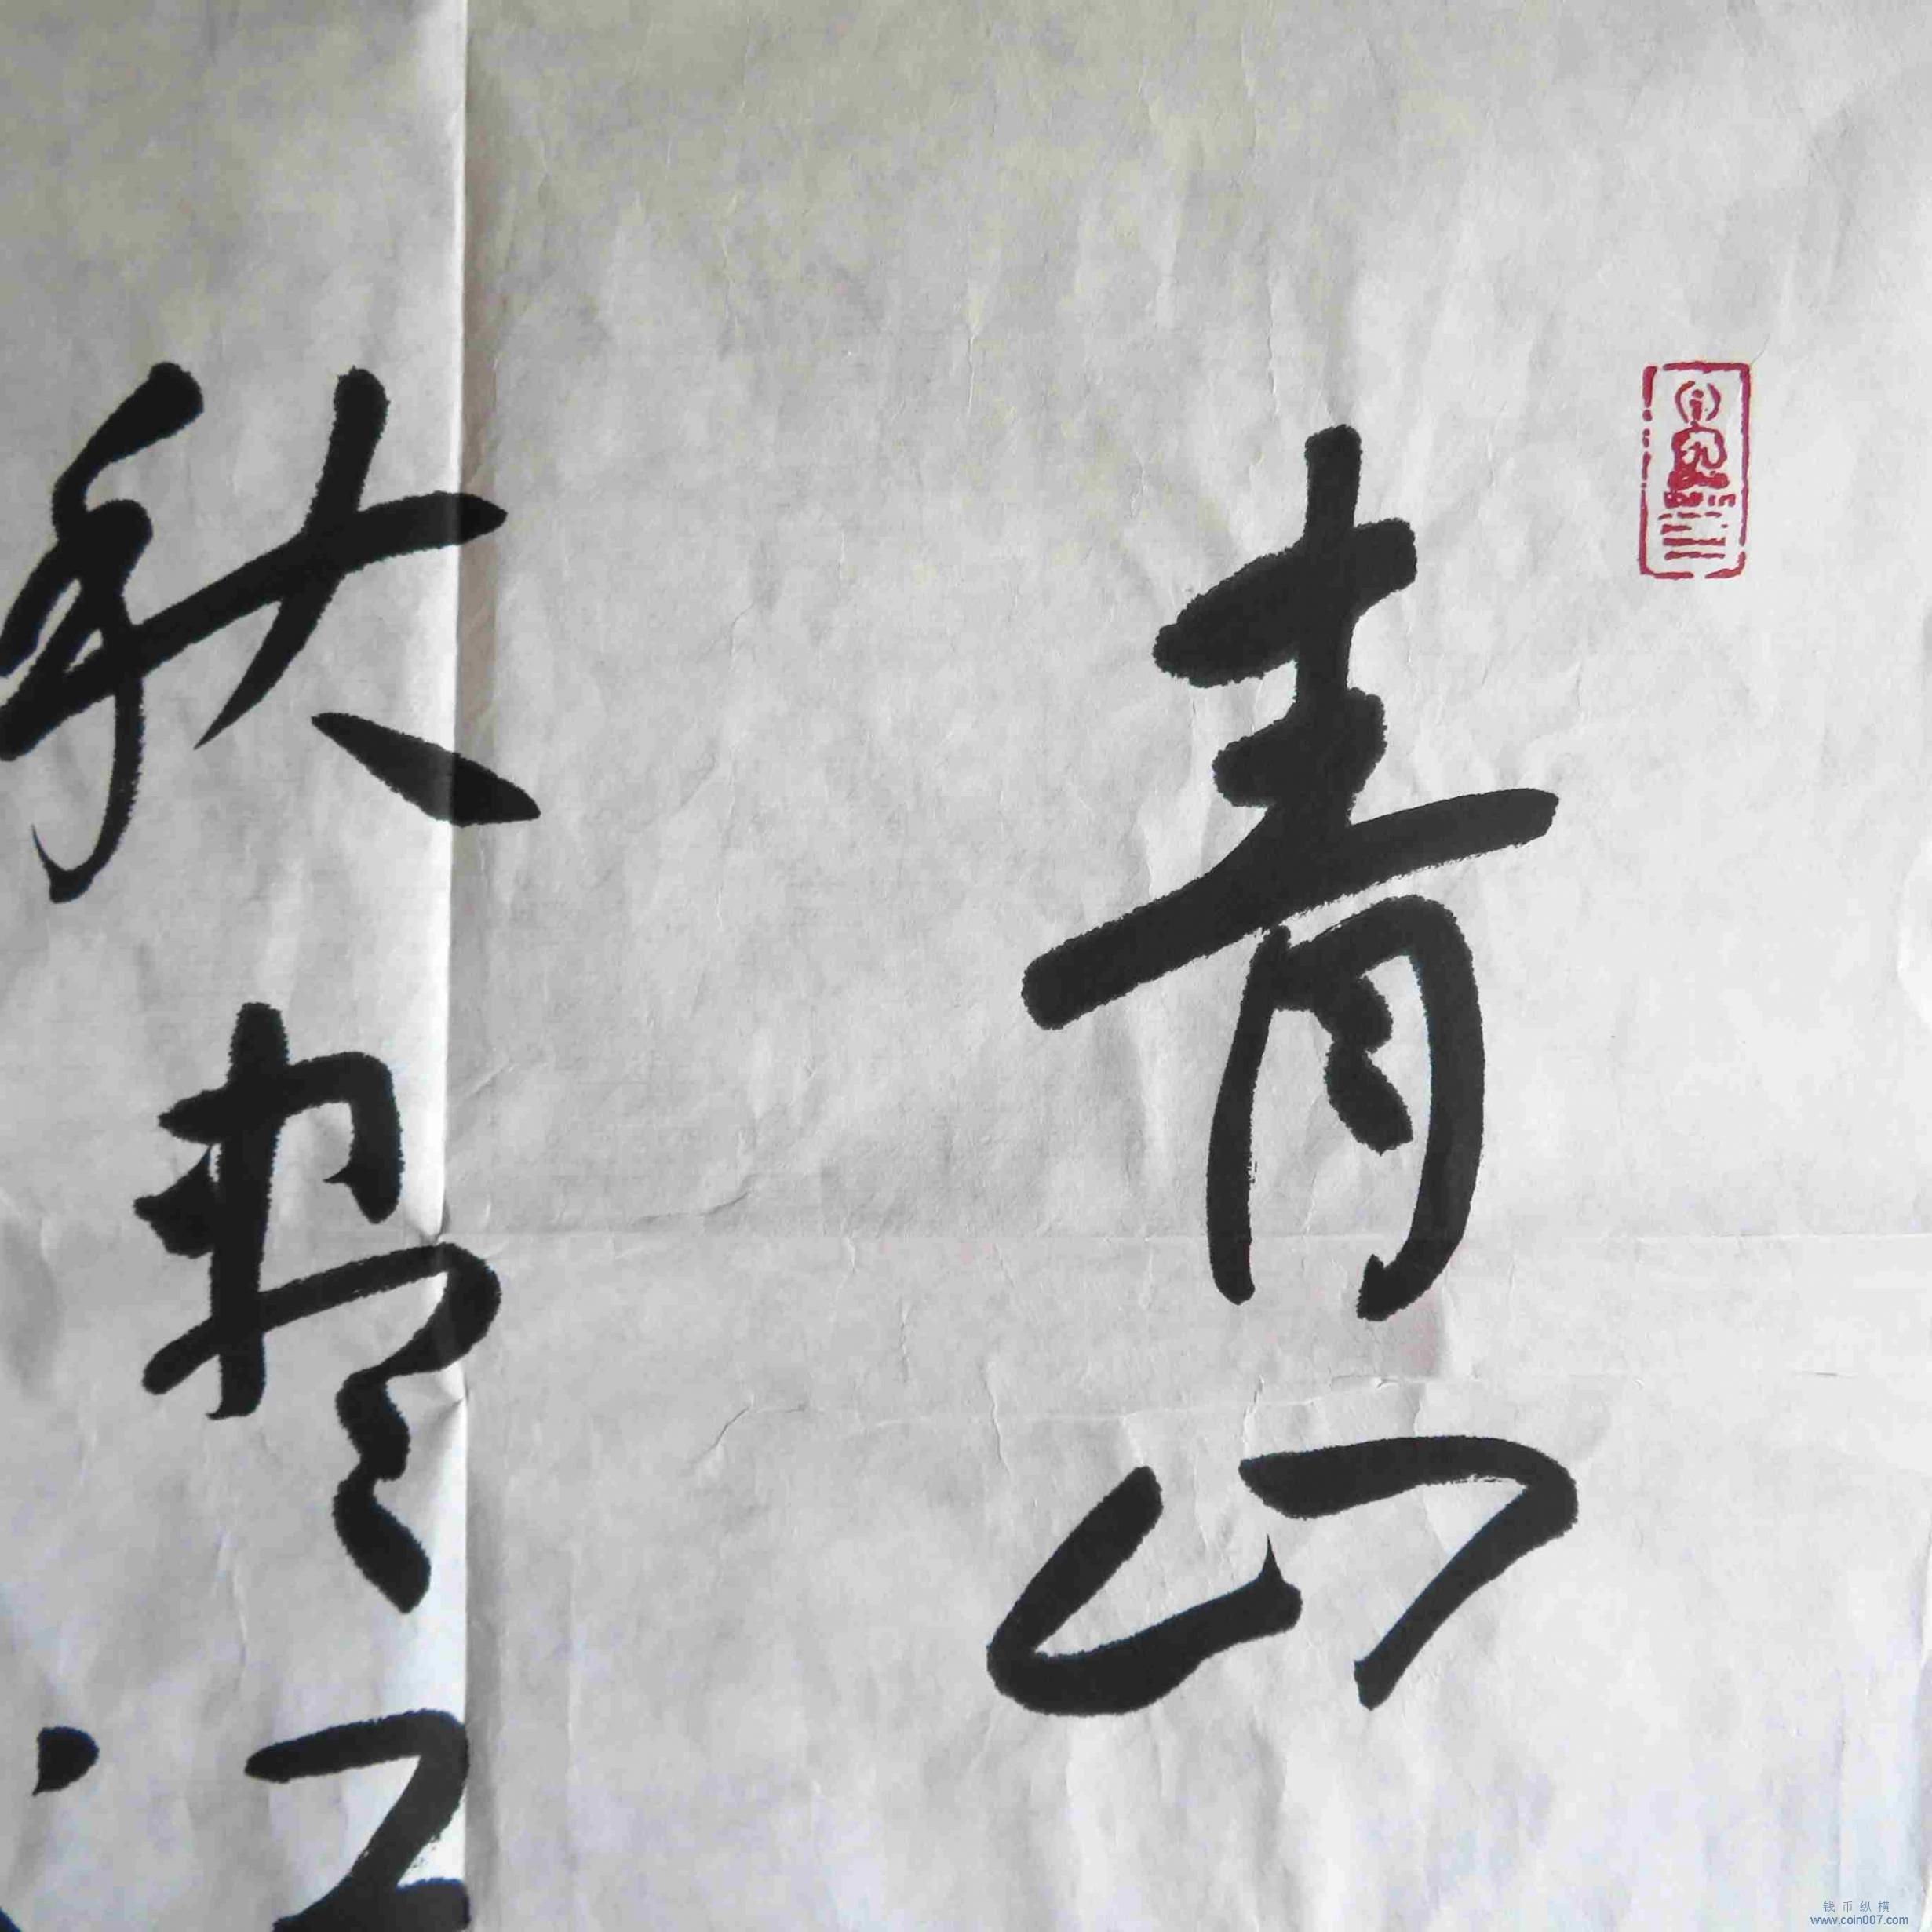 青山
秋盡江
钱币纵横
www.coin007.com